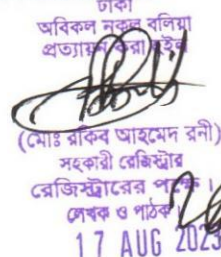 ঢাকা
অবিকল নকল বলিয়া
প্রত্যায়ন করা হইল
(মোঃ রকিব আহমেদ রনী)
সহকারী রেজিস্ট্রার
রেজিস্ট্রারের পক্ষে।
লেখক ও পাঠক
17 AUG 2023